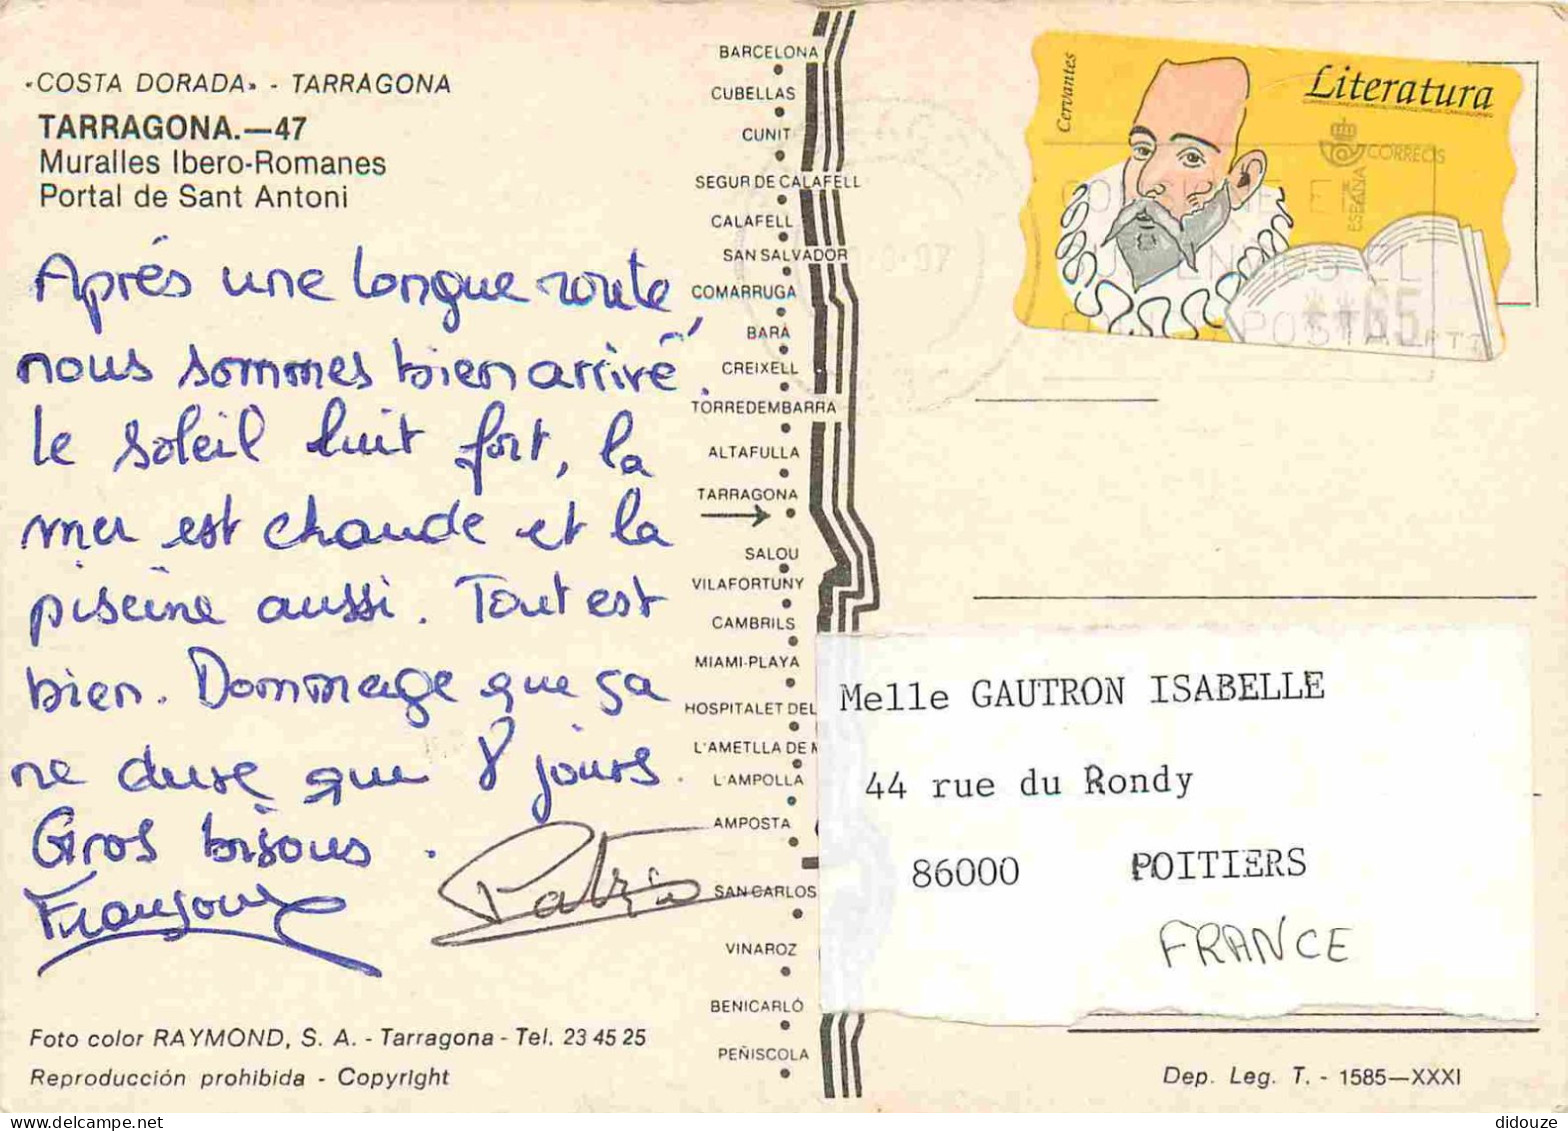 «COSTA DORADA» - TARRAGONA
TARRAGONA.—47
Muralles Ibero-Romanes
Portal de Sant Antoni
Après une longue route,
nous sommes bien arrivé.
Le soleil luit fort, la
mer est chaude et la
piscine aussi. Tout est
bien. Dommage que ça
ne dure que 8 jours.
Gros bisous.
Patrice
Foto color RAYMOND, S. A. - Tarragona - Tel. 23 45 25
Reproducción prohibida - Copyright
BARCELONA
CUBELLAS
CUNIT
SEGUR DE CALAFELL
CALAFELL
SAN SALVADOR
COMARRUGA
BARÁ
CREIXELL
TORREDEMBARRA
ALTAFULLA
TARRAGONA
SALOU
VILAFORTUNY
CAMBRILS
MIAMI-PLAYA
HOSPITALET DEL
L'AMETLLA DE
L'AMPOLLA
AMPOSTA
SAN CARLOS
VINAROZ
BENICARLÓ
PEÑISCOLA
Cervantes
Literatura
CORREOS
ESPAÑA
**65
PTS
Melle GAUTRON ISABELLE
44 rue du Rondy
86000 POITIERS
FRANCE
Dep. Leg. T. - 1585—XXXI
delcampe.net
didouze